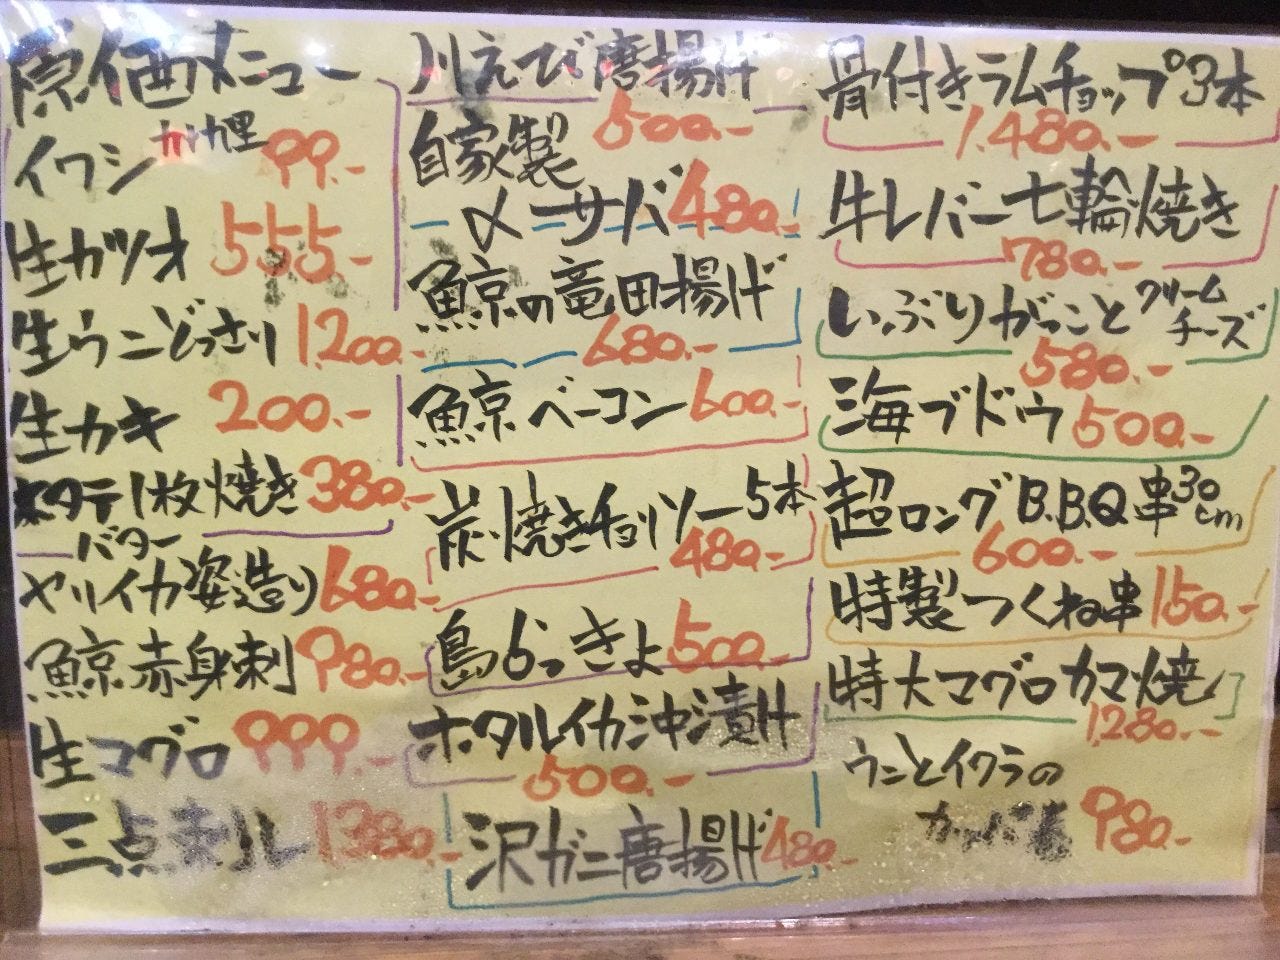 原価メニュー
イワシ 99.-
生ガツオ 555.-
生ウニどっさり 1.200.-
生カキ 200.-
ホタテ1枚焼き 380.-
バター
ヤリイカ姿造り 680.-
鯨赤身刺 980.-
生マグロ 999.-
三点刺し 1380.-
川えび唐揚げ
500.-
自家製
〆ーサバ 480.-
鯨の竜田揚げ
680.-
鯨ベーコン 600.-
炭焼きチョリソー5本
480.-
島らっきょ 500.-
ホタルイカ沖漬け
500.-
沢ガニ唐揚げ 480.-
骨付きラムチョップ3本
1.480.-
牛レバー七輪焼き
780.-
いぶりがっことクリームチーズ
580.-
海ブドウ 500.-
超ロングB.B.Q串30cm
600.-
特製つくね串 150.-
特大マグロカマ焼
1280.-
ウニとイクラの
カッパ巻 980.-